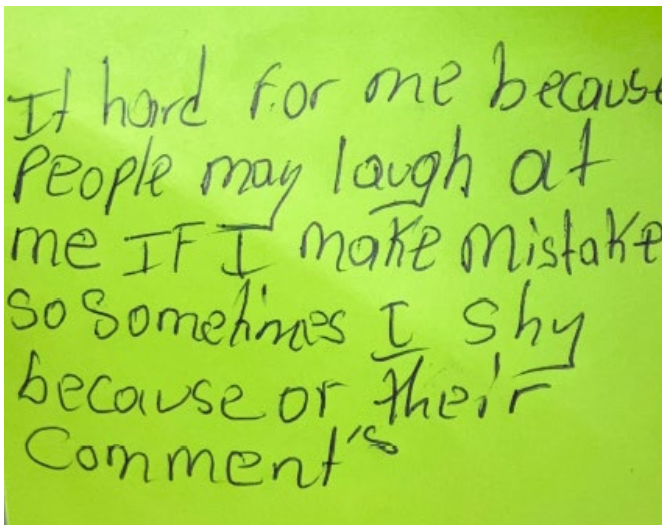 It hard for me because
People may laugh at
me IF I make mistake
so sometimes I shy
because or their
Comment's